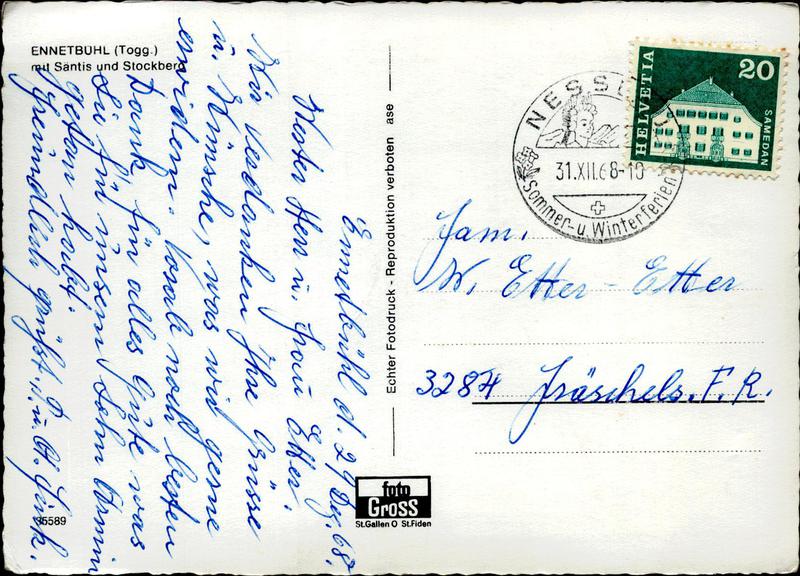 ENNETBÜHL (Togg.)
mit Säntis und Stockberg
Ennetbühl d. 29. Dez. 68.
Werter Herr u. Frau Etter.
Wir verdanken Ihre Grüsse
u. Wünsche, was wir gerne
erwidern. Vorab noch besten
Dank für alles Gute was
Sie für unsern Sohn Armin
getan habt.
Freundlich grüsst
35589
Echter Fotodruck - Reproduktion verboten ase
foto
Gross
St.Gallen O St.Fiden
31.XII.68-10
Sommer- u. Winterferien
HELVETIA
20
SAMEDAN
Fam.
W. Etter - Etter
3284 Fräschels. F. R.